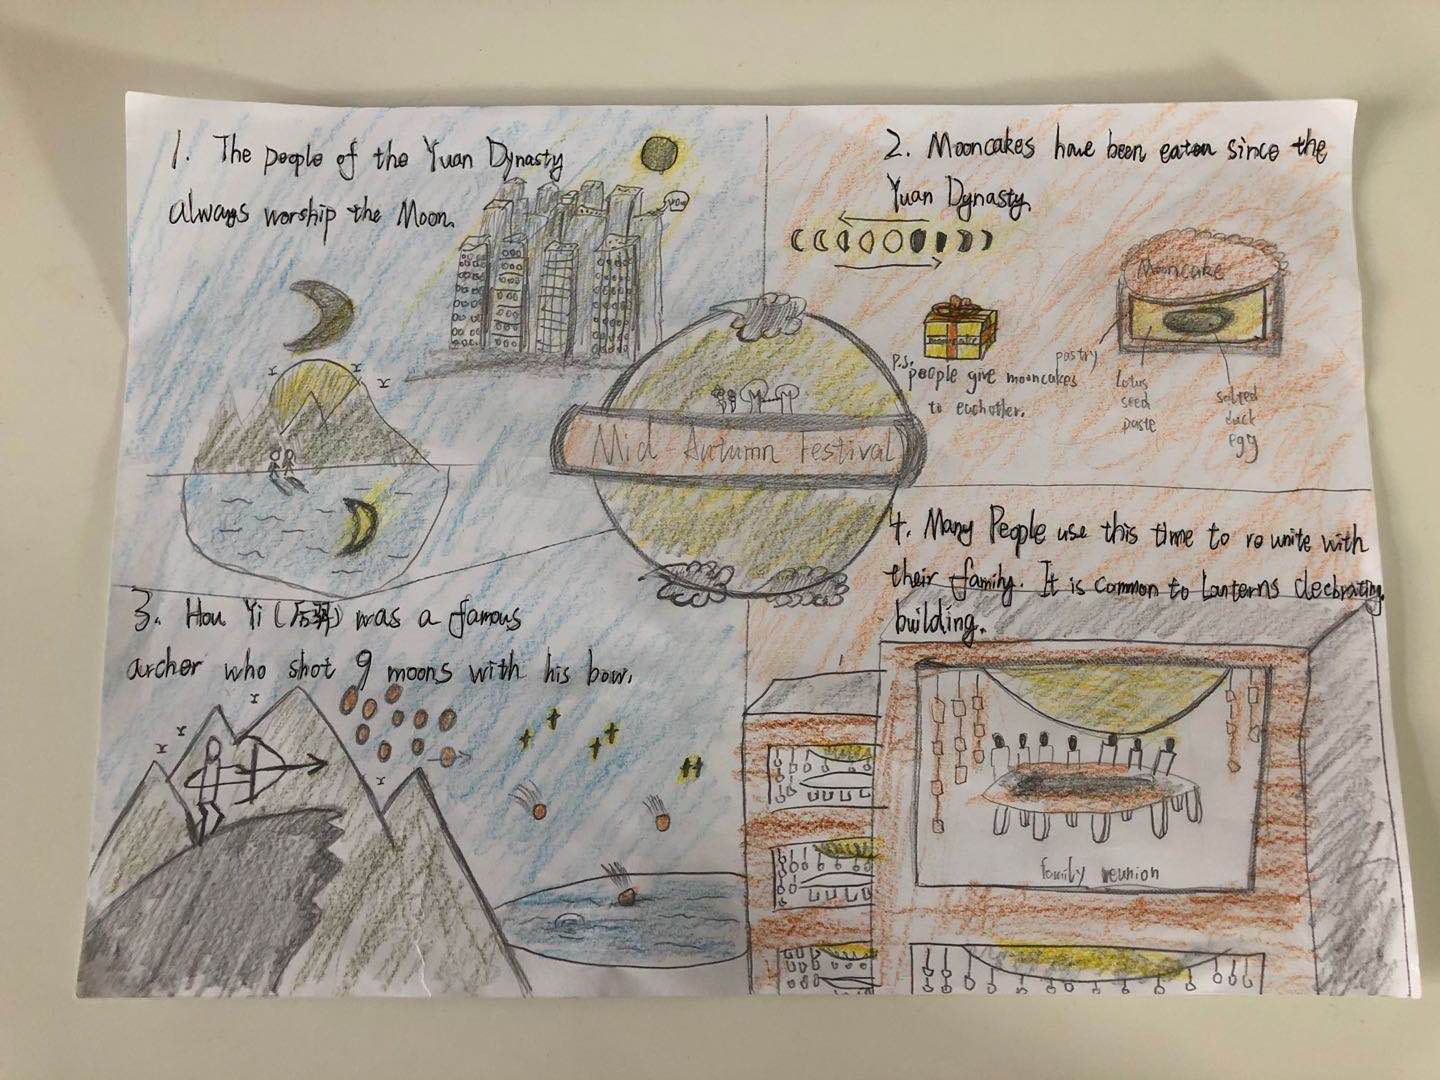 1. The people of the Yuan Dynasty
always worship the Moon.
2. Mooncakes have been eaten since the
Yuan Dynasty.
Mooncake
mooncake
P.S.
people give mooncakes
to eachother.
pastry
lotus
seed
paste
salted
duck
egg
Mid-Autumn Festival
3. Hou Yi (后羿) was a famous
archer who shot 9 moons with his bow.
4. Many People use this time to reunite with
their family. It is common to Lanterns decbrating
building.
family reunion